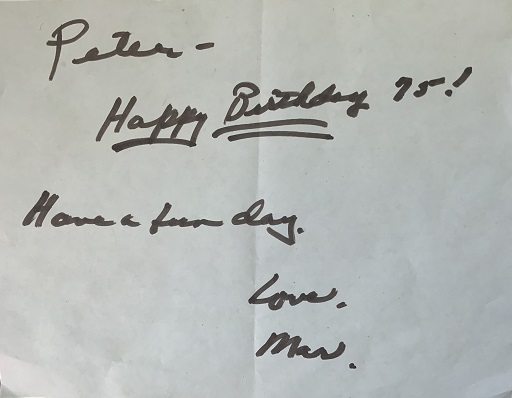 Peter -
Happy Birthday 75!
Have a fun day.
Love.
Mar.